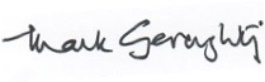 Mark Geraghty